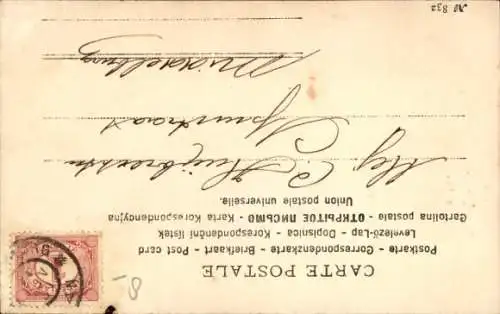 CARTE POSTALE
Postkarte - Correspondenzkarte - Briefkaart - Post card
Levelező-Lap - Dopisnica - Korespondenční lístek
Cartolina postale - ОТКРЫТОЕ ПИСЬМО - Karta Korespondencyjna
Union postale universelle.
Mej. C.
Middelburg
№ 832
8